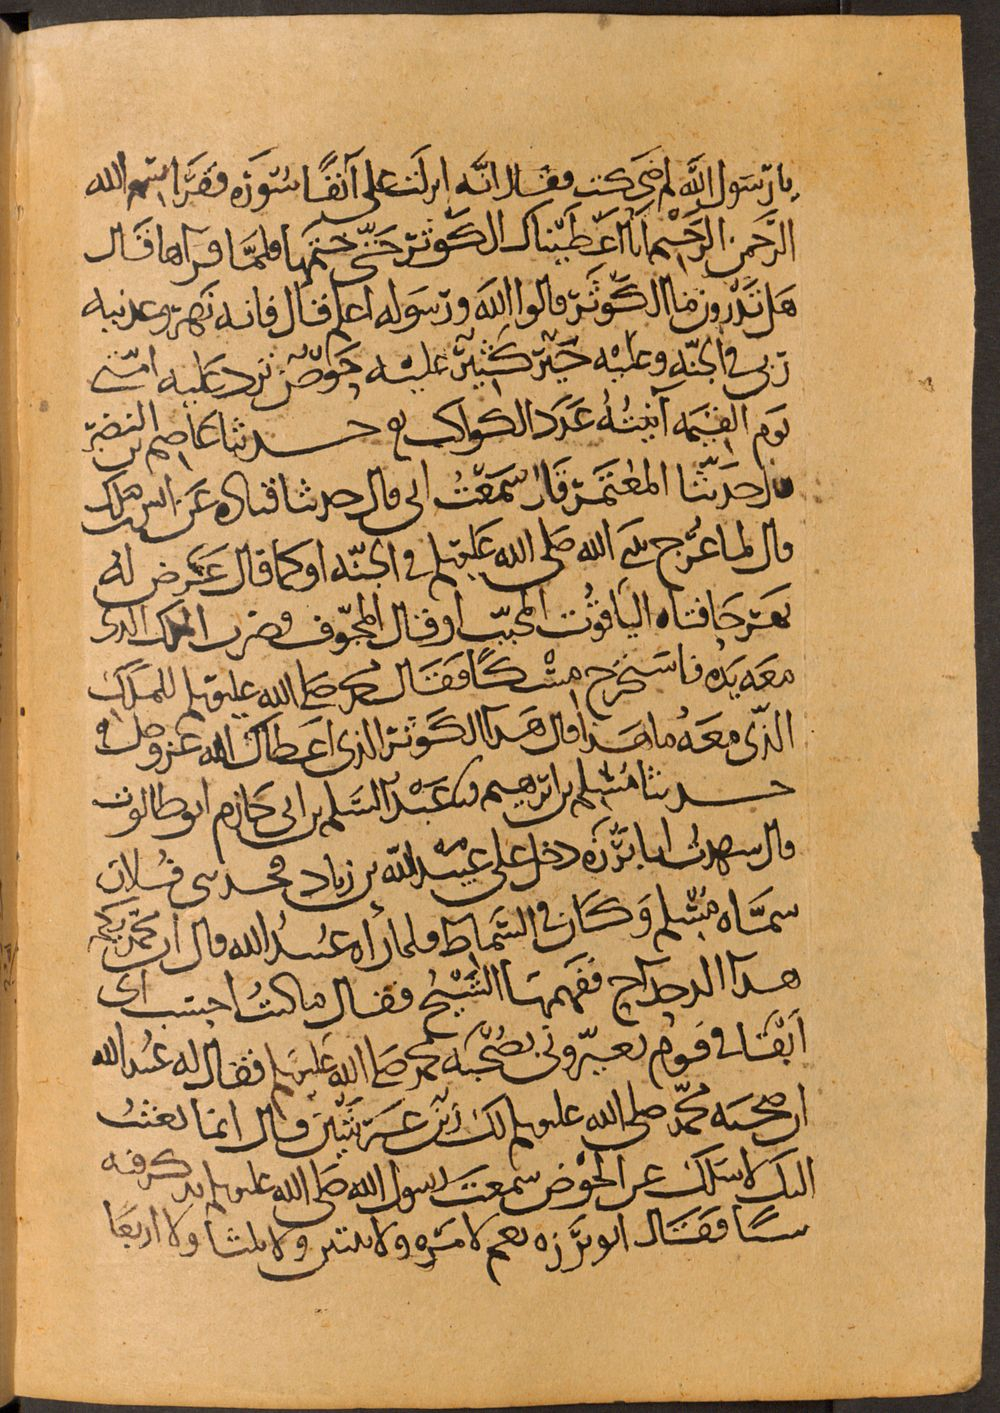 يا رسول الله لم ضحكت فقال انه انزلت علي آنفًا سُورَه فقَرَأ بسم الله
الرحمن الرحيم انا اعطيناك الكوثر حَتى ختمها فلمّا قرأها قال
هَل تَدْرون ما الكَوثَر قالوا الله ورَسوله اعلم قال فانه نَهرٌ وعدنيه
رَبي في الجنّه وعليه خيرٌ كثيرٌ عليه حَوضٌ تَرد عليه امتي
يَوم القيمه آنيتُهُ عَدَد الكواكب حدثنا عاصم بن النضر
قال حَدّثَنا المعتَمر قال سَمعْتُ ابي قال حدثنا قتاده عَن انس بن ملك
قال لما عُرِج بنبي الله صَلى الله عَليه وسلم في الجنّه او كما قال عُرض له
نهر حَافتاه الياقُوت المجيّب او قال المجوّف فضرب الملك الذي
معه يَدَه فاستخرج مسْكًا فقَال محمد صلى الله عليه وسلم للملَك
الذّي معَهُ ما هَذا قال هَذا الكَوثر الذي اعطاك الله عز وجل
حدثنا مُسْلم بن ابرهيم عَبْد السَلم بن ابي حَازم ابو طالوت
قال شهدت ابا برْزَه دخل على عُبيْد اللّه بن زياد فحدثني فُلان
سمّاه مُسْلم وَكان في السّماط فلما رأه عبيدُ الله قال ان مُحَمّديكم
هذا الدحداح ففَهمهَا الشَيْخُ فقال ما كنتُ احسب اني
اَبْقَا في قَومٍ يعيّروني بصُحْبَه محمد صلى الله عليه وسلم فقال له عُبيد الله
ان صحبَه محمّد صلى الله عليه وسلم لك زَينٌ غيرُ شَيْن قال انما بعَثتُ
اليك لاسئلك عن الحَوْض سمعتَ رسول الله صَلى الله عليه وسلم يذكر فيه
شيئًا فقَال ابو برْزه نعم لا مَرّه ولا ثنتين ولا ثلثا ولا اربعًا